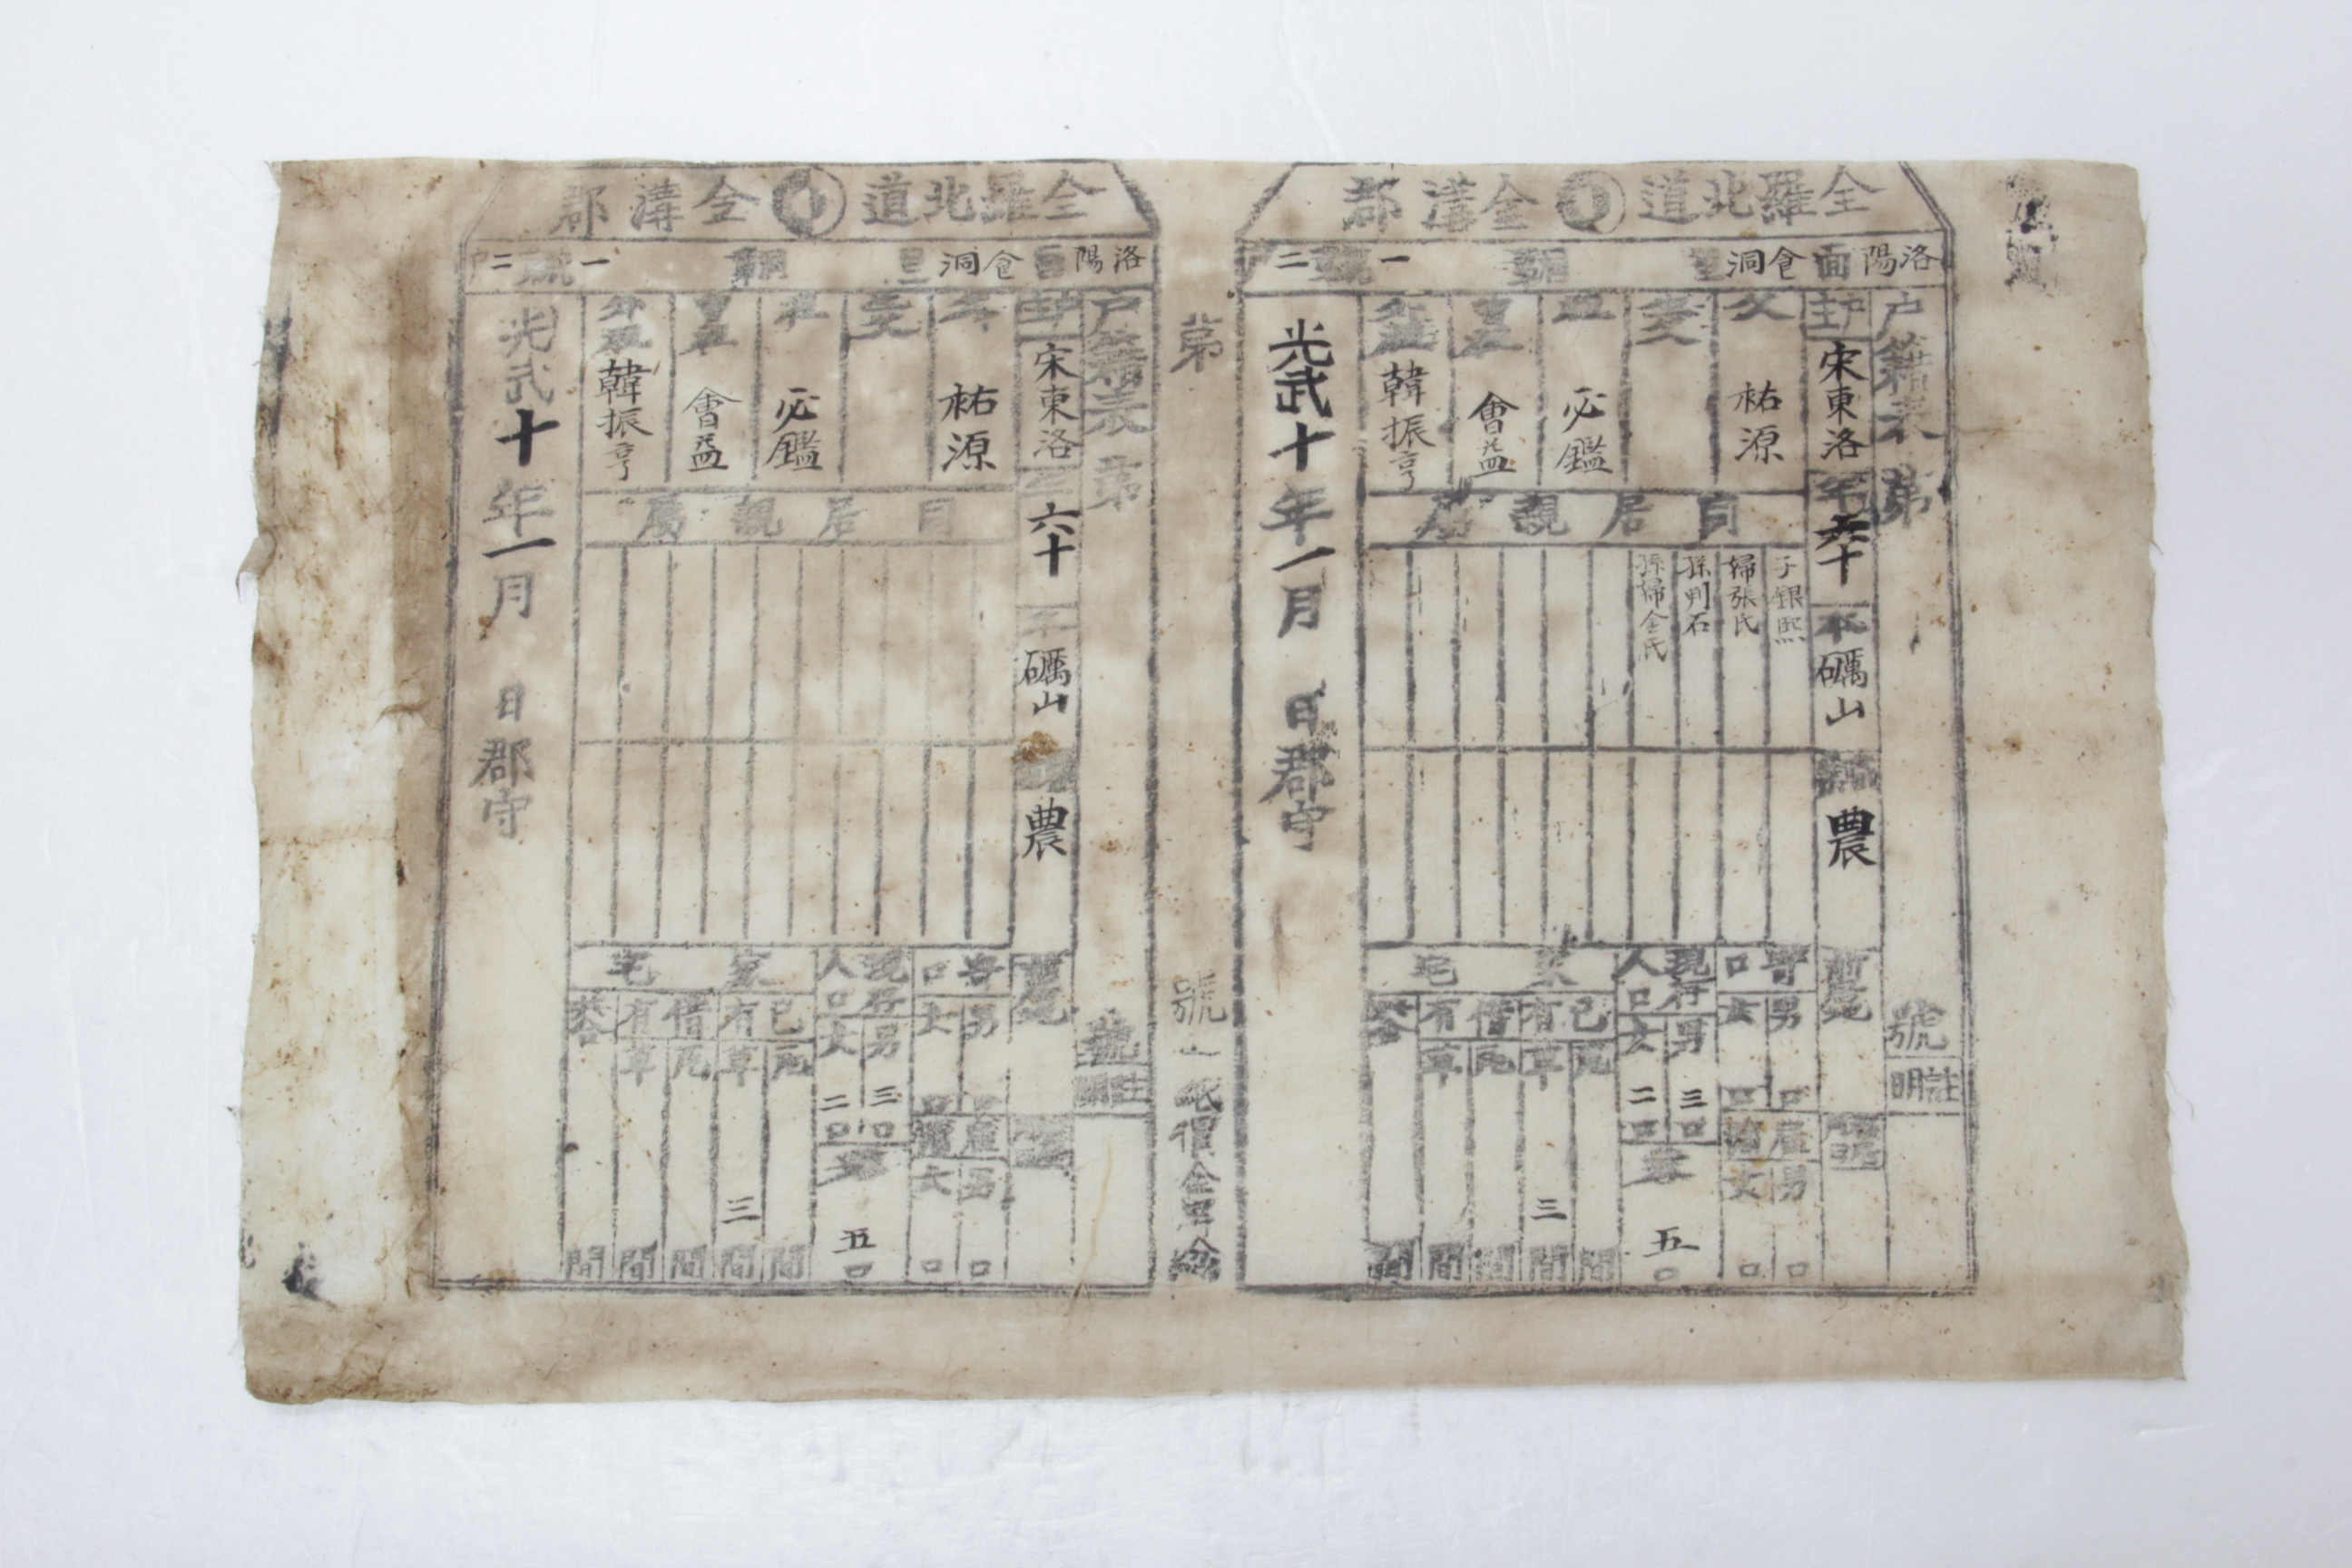 全羅北道 金溝郡
洛陽面 食洞里 統 一號 二戶
戶籍表 第 號
註明
戶主 宋東洛 年 六十 本 礪山 農
父 祐源
生父
祖 必鑑
曾祖 會益
外祖 韓振亨
同居親屬
子 銀熙
婦張氏
孫 判石
孫婦金氏
寄口 男 口 女 口
雇傭 男 口 女 口
現存人口 男 三口 女 二口
共 五口
家宅
己有 瓦 間 草 三間
借有 瓦 間 草 間
共合 間
光武十年一月 日 郡守
第 號
全羅北道 金溝郡
洛陽面 食洞里 統 一號 二戶
戶籍表 第 號
註明
戶主 宋東洛 年 六十 本 礪山 農
父 祐源
生父
祖 必鑑
曾祖 會益
外祖 韓振亨
同居親屬
寄口 男 口 女 口
雇傭 男 口 女 口
現存人口 男 三口 女 二口
共 五口
家宅
己有 瓦 間 草 三間
借有 瓦 間 草 間
共合 間
光武十年一月 日 郡守